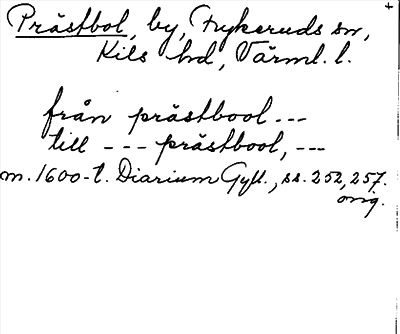 Prästbol, by, Frykeruds sn,
Kils hd, Värml. l.
från prästbool ---
till --- prästbool, ---
m. 1600-t. Diarium Gyll., ss. 252, 257.
orig.